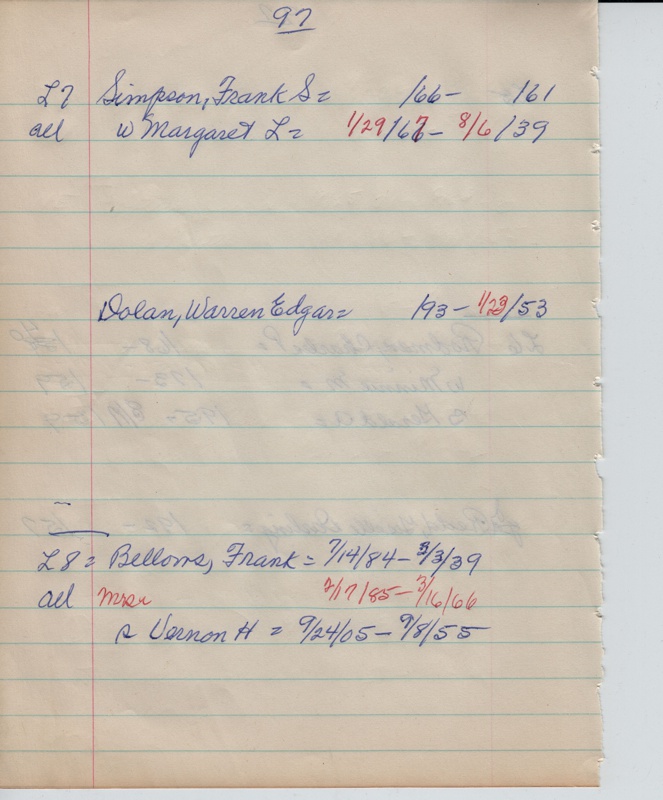 97
L7 Simpson, Frank S = /66- /61
all w Margaret L = 1/29/67- 8/6/39
Dolan, Warren Edgar = /93- 1/23/53
L8 = Bellows, Frank = 7/14/84- 3/3/39
all Mrs. /17/85- 3/16/66
s Vernon H = 9/24/05- 9/8/55